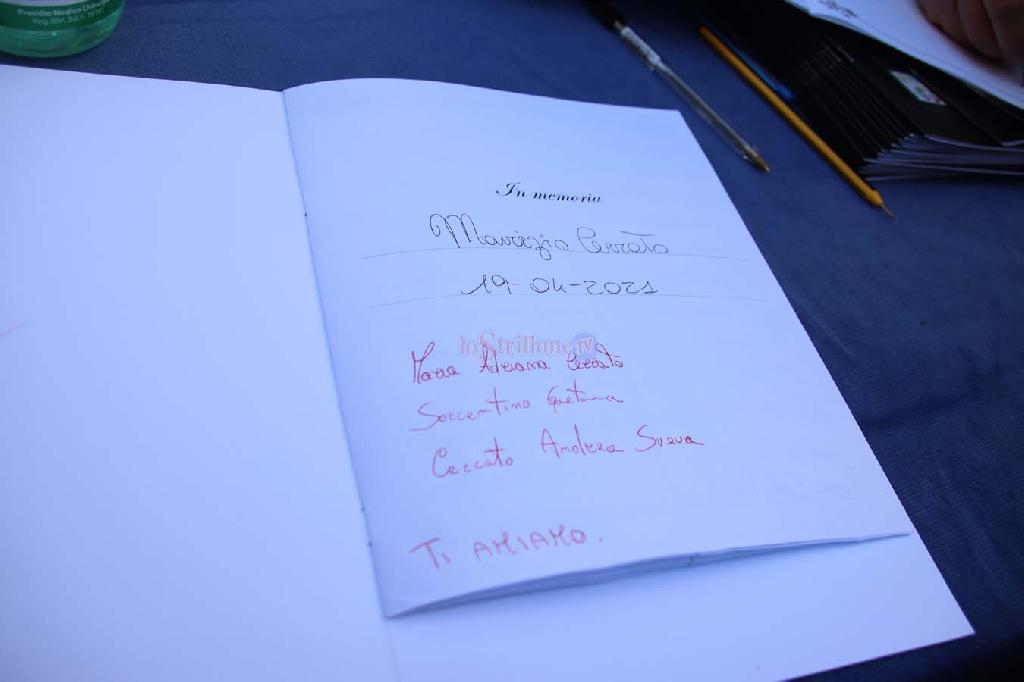 Presidio Medico Chirurgico
In memoria
Maurizio Cerrato
19-04-2021
loStrillone TV
Maria Adriana Cerrato
Sorrentino Gaetana
Cerrato Andrea Sveva
TI AMIAMO.